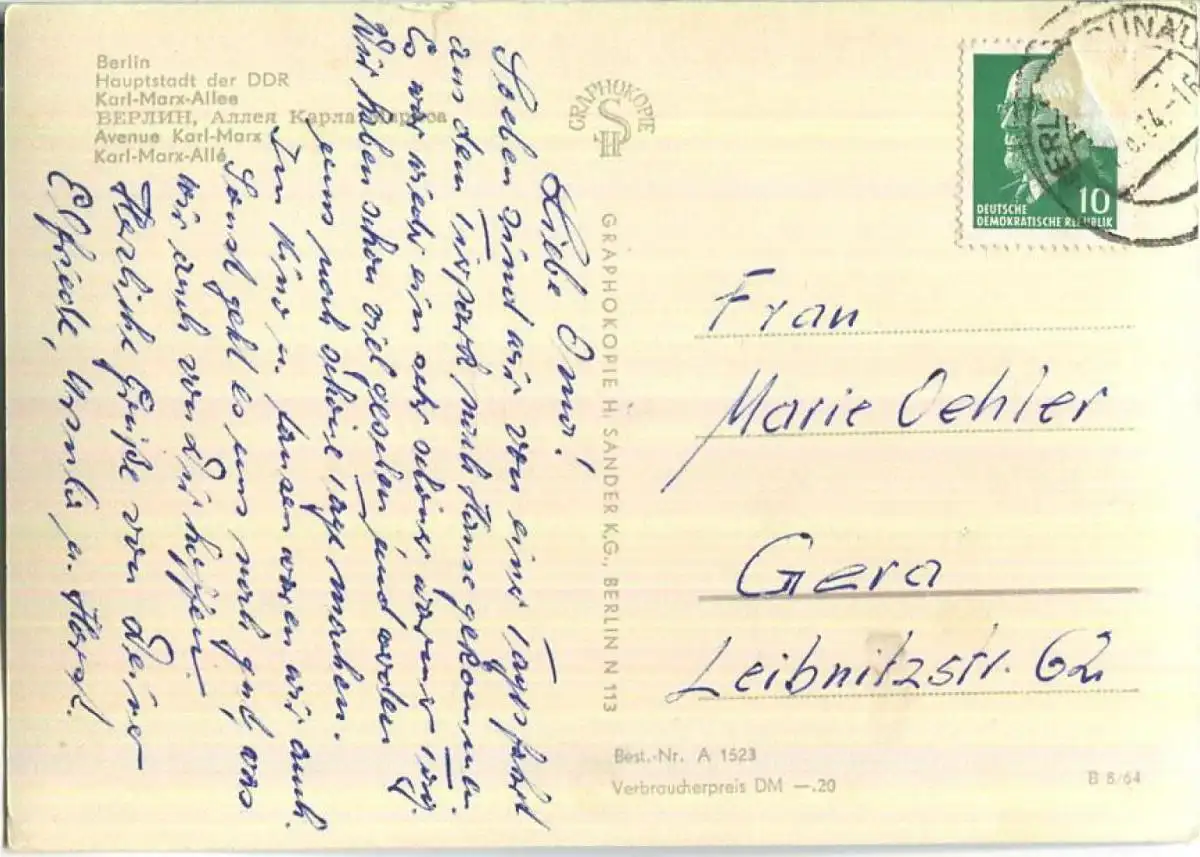 Berlin
Hauptstadt der DDR
Karl-Marx-Allee
БЕРЛИН, Аллея Карла Маркса
Avenue Karl-Marx
Karl-Marx-Allé
Liebe Oma!
Soeben sind wir von einer Tagesfahrt
aus dem nach Hause gekommen.
Es war wieder ein sehr schöner warmer Tag.
Wir haben schon viel gesehen und wollen
uns noch schöne Tage machen.
Im Kino u. tanzen waren wir auch.
Sonst geht es uns noch gut, was
wir auch von Dir hoffen.
Herzliche Grüße von Deiner
Elfriede, Ursula u. Horst.
GRAPHOKOPIE
HS
GRAPHOKOPIE H. SANDER K.G., BERLIN N 113
DEUTSCHE
DEMOKRATISCHE REPUBLIK
10
Frau
Marie Oehler
Gera
Leibnitzstr. 62
Best.-Nr. A 1523
Verbraucherpreis DM —.20
B 6/64